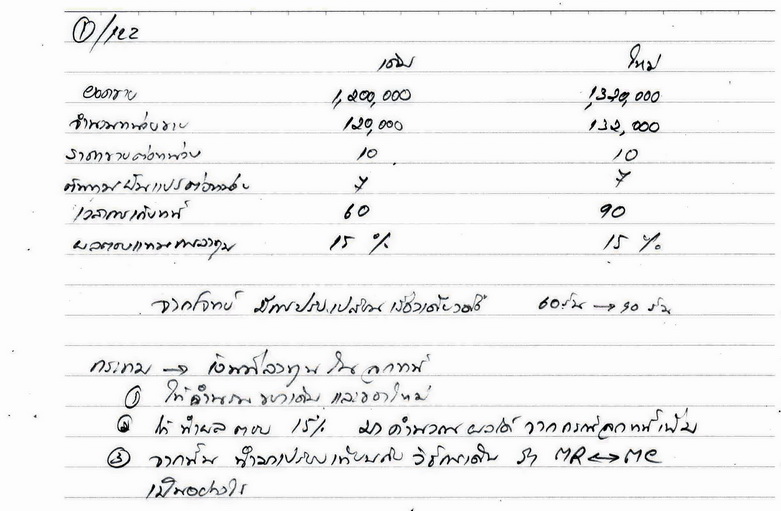 ①/122
เดิม ใหม่
ยอดขาย 1,200,000 1,320,000
จำนวนหน่วยขาย 120,000 132,000
ราคาขายต่อหน่วย 10 10
ต้นทุนผันแปรต่อหน่วย 7 7
เวลาการเก็บหนี้ 60 90
ผลตอบแทนการลงทุน 15 % 15 %
จากโจทย์ มีการปรับเปลี่ยน 60 วัน → 90 วัน
กระทบ → เงินที่ลงทุนในลูกหนี้
① ให้คำนวณของเดิม และของใหม่
② ให้นำผลตอบ 15% มาคำนวณผลได้จากกรณีลูกหนี้เพิ่ม
③ จากนั้น นำมาเปรียบเทียบกับวิธีการเดิม ว่า MR ↔ MC
เป็นอย่างไร